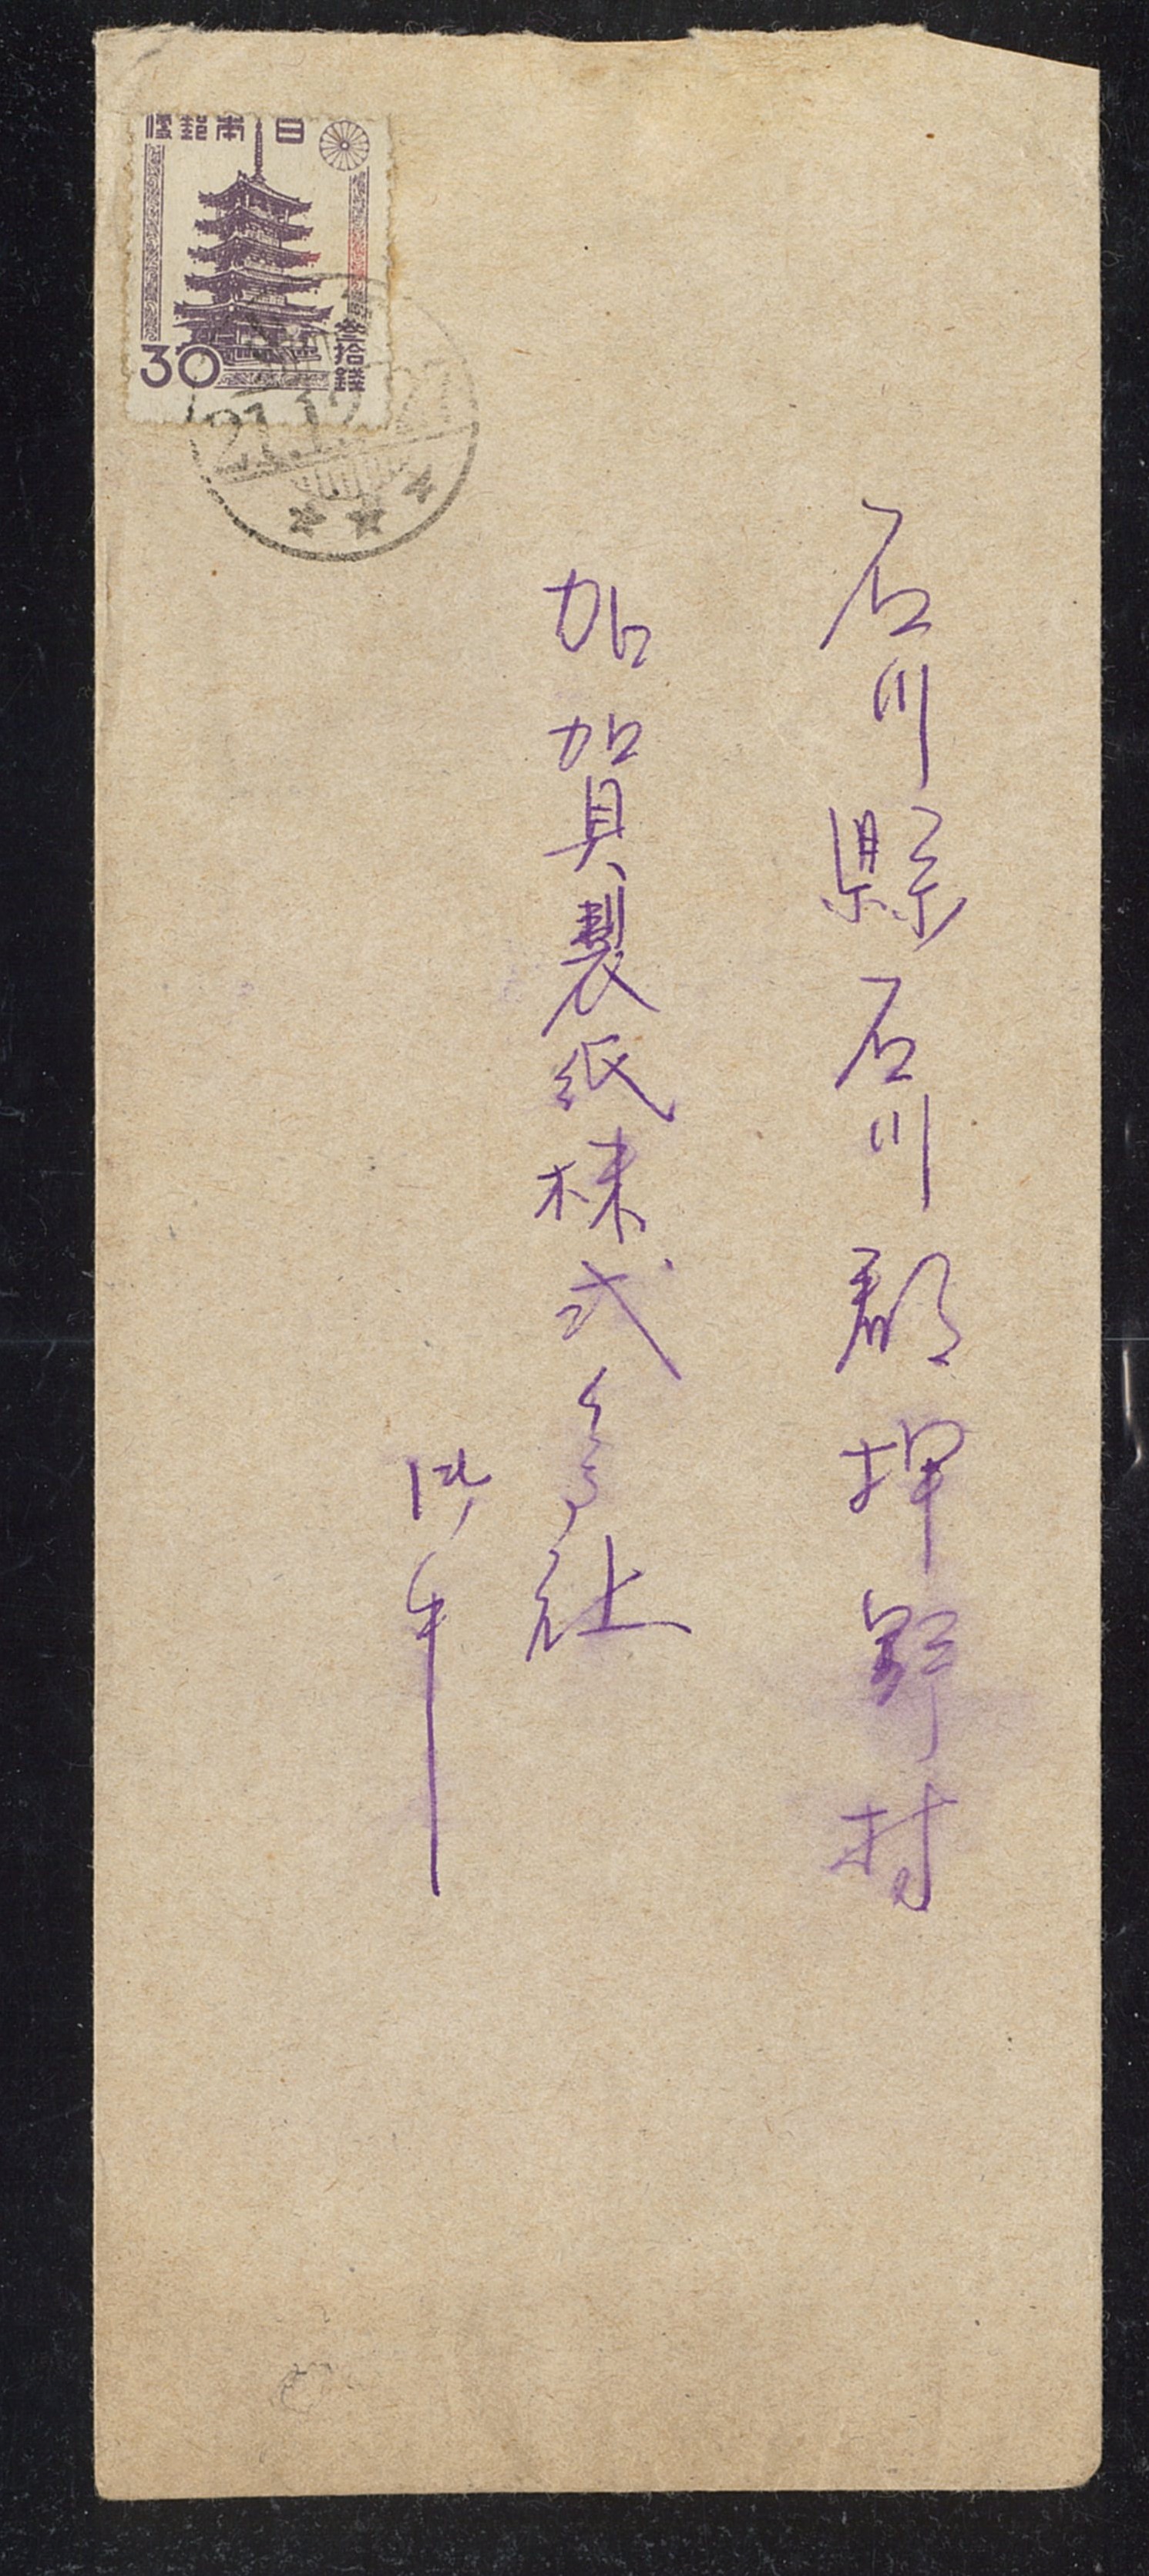 石川縣石川郡押野村
加賀製紙株式會社
御中
日本郵便
参拾錢
30
21.12.21